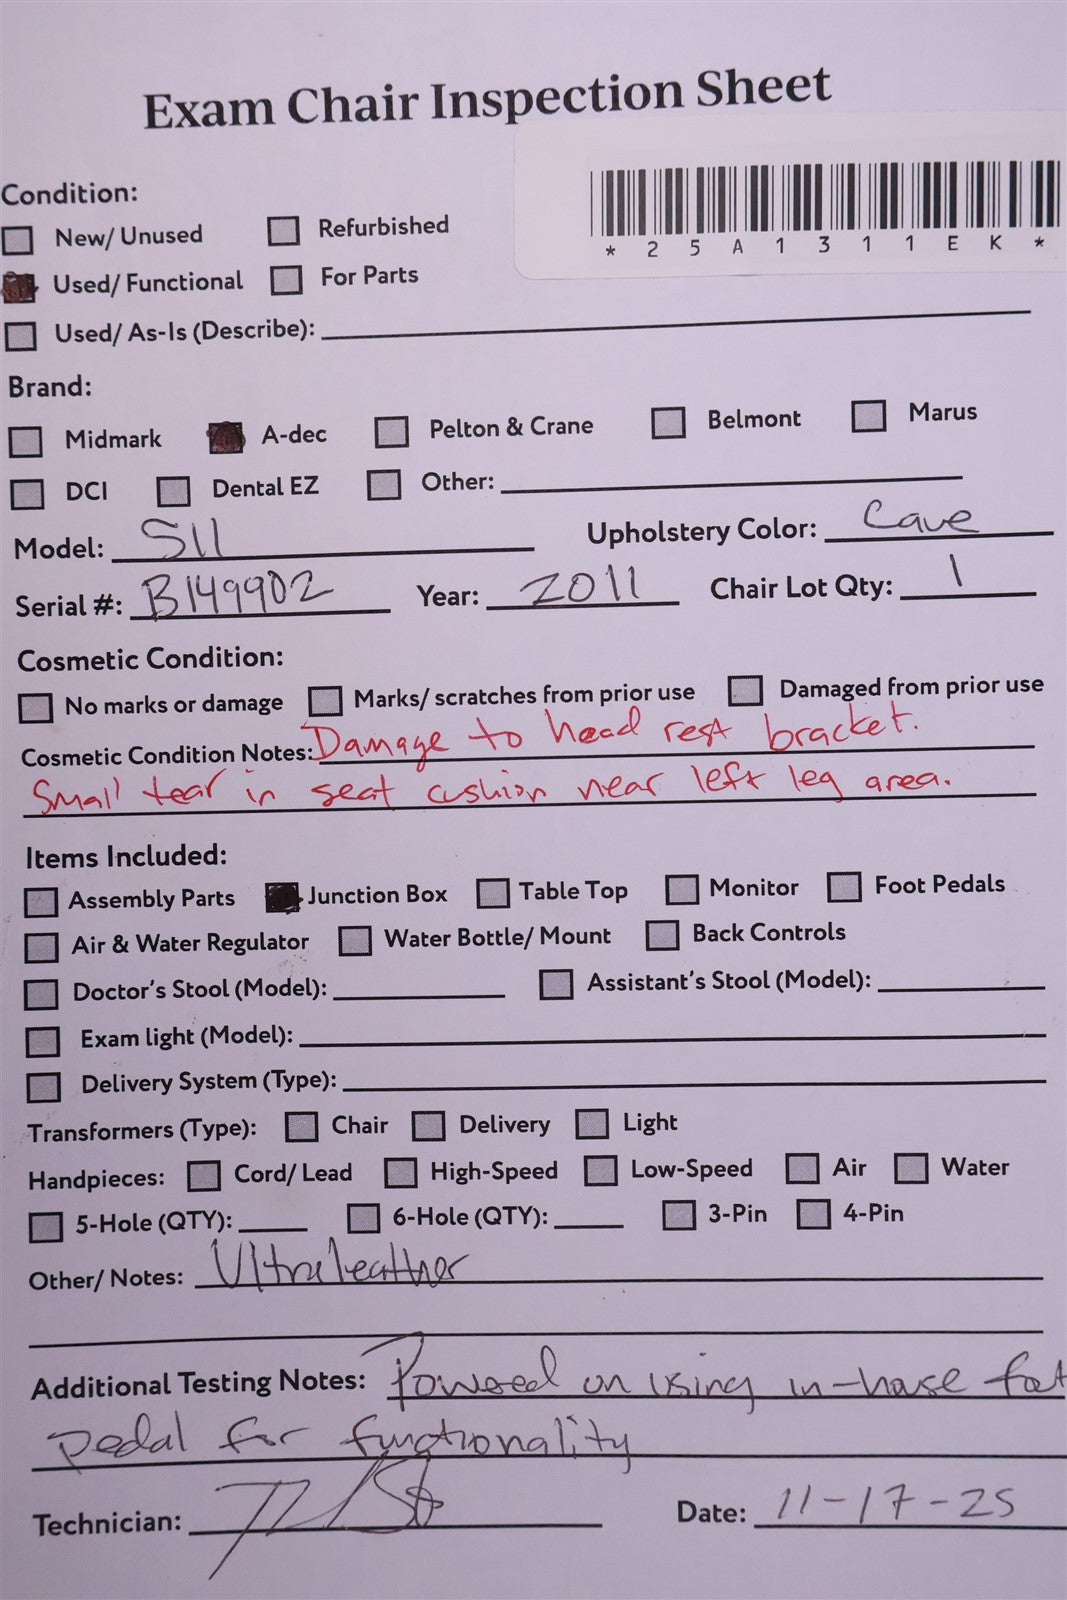 Exam Chair Inspection Sheet
*25A1311EK*
Condition:
New/ Unused Refurbished
Used/ Functional For Parts
Used/ As-Is (Describe):
Brand:
Midmark A-dec Pelton & Crane Belmont Marus
DCI Dental EZ Other:
Model: 511 Upholstery Color: Cave
Serial #: B149902 Year: 2011 Chair Lot Qty: 1
Cosmetic Condition:
No marks or damage Marks/ scratches from prior use Damaged from prior use
Cosmetic Condition Notes: Damage to head rest bracket.
Small tear in seat cushion near left leg area.
Items Included:
Assembly Parts Junction Box Table Top Monitor Foot Pedals
Air & Water Regulator Water Bottle/ Mount Back Controls
Doctor's Stool (Model): Assistant's Stool (Model):
Exam light (Model):
Delivery System (Type):
Transformers (Type): Chair Delivery Light
Handpieces: Cord/ Lead High-Speed Low-Speed Air Water
5-Hole (QTY): 6-Hole (QTY): 3-Pin 4-Pin
Other/ Notes: Ultraleather
Additional Testing Notes: Powered on using in-house foot
pedal for functionality
Technician:
Date: 11-17-25